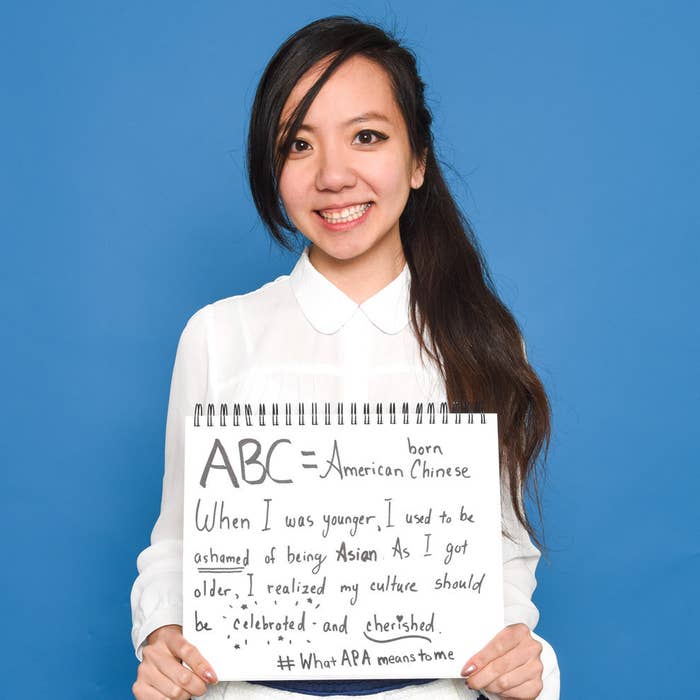 ABC = American born Chinese
When I was younger, I used to be
ashamed of being Asian. As I got
older, I realized my culture should
be celebrated - and cherished.
#WhatAPA meanstome